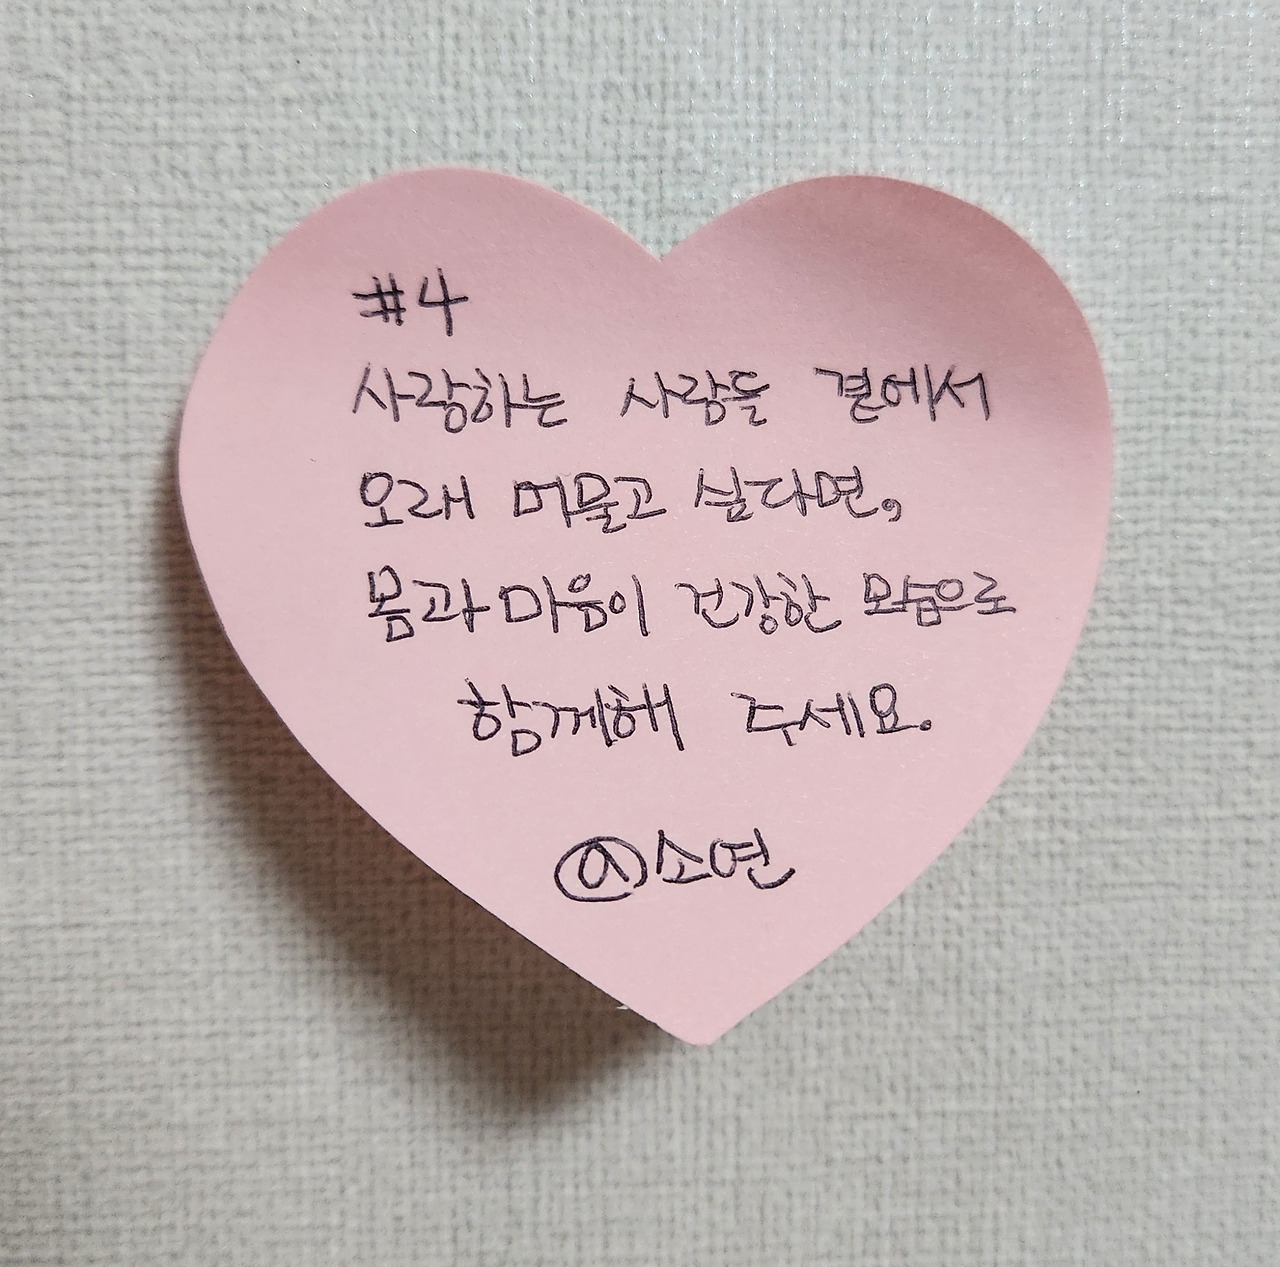 #4
사랑하는 사람들 곁에서
오래 머물고 싶다면,
몸과 마음이 건강한 모습으로
함께해 주세요.
@소연